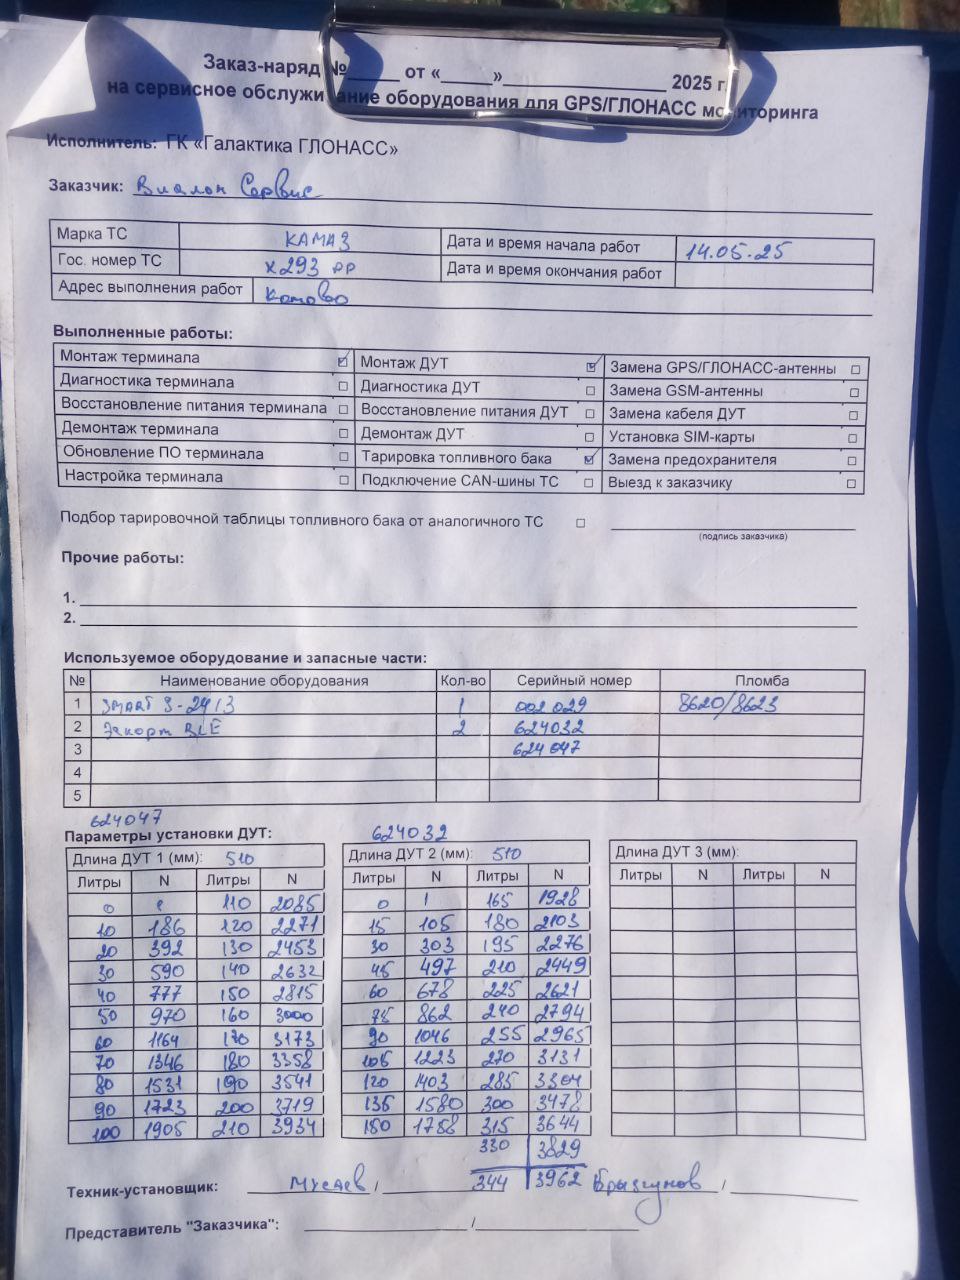 Заказ-наряд №______ от «_____»__________________ 2025 г.
на сервисное обслуживание оборудования для GPS/ГЛОНАСС мониторинга
Исполнитель: ГК «Галактика ГЛОНАСС»
Заказчик: Виалон Сервис
Марка ТС КАМАЗ Дата и время начала работ 14.05.25
Гос. номер ТС х293 рр Дата и время окончания работ
Адрес выполнения работ
Выполненные работы:
Монтаж терминала ☑ Монтаж ДУТ ☑ Замена GPS/ГЛОНАСС-антенны ☐
Диагностика терминала ☐ Диагностика ДУТ ☐ Замена GSM-антенны ☐
Восстановление питания терминала ☐ Восстановление питания ДУТ ☐ Замена кабеля ДУТ ☐
Демонтаж терминала ☐ Демонтаж ДУТ ☐ Установка SIM-карты ☐
Обновление ПО терминала ☐ Тарировка топливного бака ☑ Замена предохранителя ☐
Настройка терминала ☐ Подключение CAN-шины ТС ☐ Выезд к заказчику ☐
Подбор тарировочной таблицы топливного бака от аналогичного ТС ☐
(подпись заказчика)
Прочие работы:
1.
2.
Используемое оборудование и запасные части:
№ Наименование оборудования Кол-во Серийный номер Пломба
1 SMART S-2413 1 002029 8620/8623
2 Эскорт BLE 2 624032
3 624047
4
5
624047 624032
Параметры установки ДУТ:
Длина ДУТ 1 (мм): 510 Длина ДУТ 2 (мм): 510 Длина ДУТ 3 (мм):
Литры N Литры N Литры N Литры N Литры N Литры N
0 110 2085 0 1 165 1928
10 186 120 2271 15 105 180 2103
20 392 130 2453 30 303 195 2276
30 590 140 2632 45 497 210 2449
40 777 150 2815 60 678 225 2621
50 970 160 3000 75 862 240 2794
60 1164 170 3173 90 1046 255 2965
70 1346 180 3358 105 1223 270 3131
80 1531 190 3541 120 1403 285 3304
90 1723 200 3719 135 1580 300 3478
100 1905 210 3934 150 1758 315 3644
330 3829
344 3962
Техник-установщик: Мусаев / Брызгунов /
Представитель "Заказчика": /